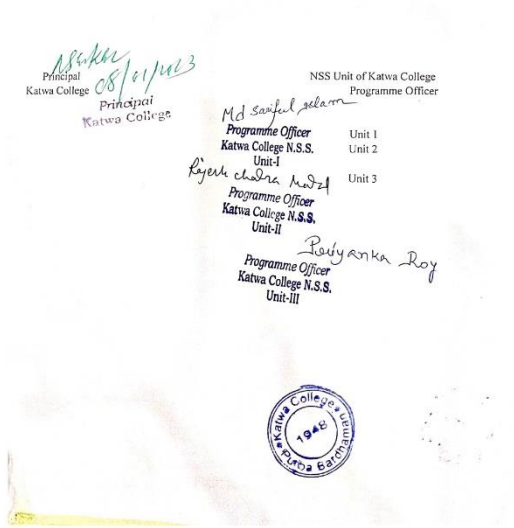 08/01/2023
Principal
Katwa College
Principal
Katwa College
NSS Unit of Katwa College
Programme Officer
Md Sariful Islam
Programme Officer
Katwa College N.S.S.
Unit-I
Unit 1
Unit 2
Unit 3
Rajesh chandra
Programme Officer
Katwa College N.S.S.
Unit-II
Priyanka Roy
Programme Officer
Katwa College N.S.S.
Unit-III
Katwa College
1948
Purba Bardhaman